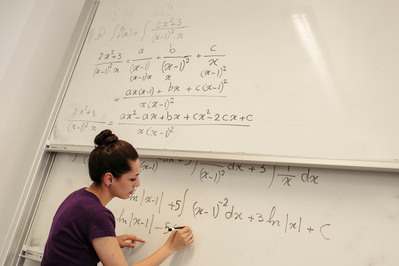 ∫ (2x²+3)/((x-1)²·x)
(2x²+3)/((x-1)²x) = a/(x-1) + b/(x-1)² + c/x
(x-1)x x (x-1)²
= (ax(x-1) + bx + c(x-1)²)/(x(x-1)²)
(2x²+3)/((x-1)²x) = (ax²-ax+bx+cx²-2cx+c)/(x(x-1)²)
(x-1) (x-1)² dx + 3∫ 1/x dx
ln|x-1| + 5∫(x-1)⁻²dx + 3 ln|x| + C
ln|x-1| - 5